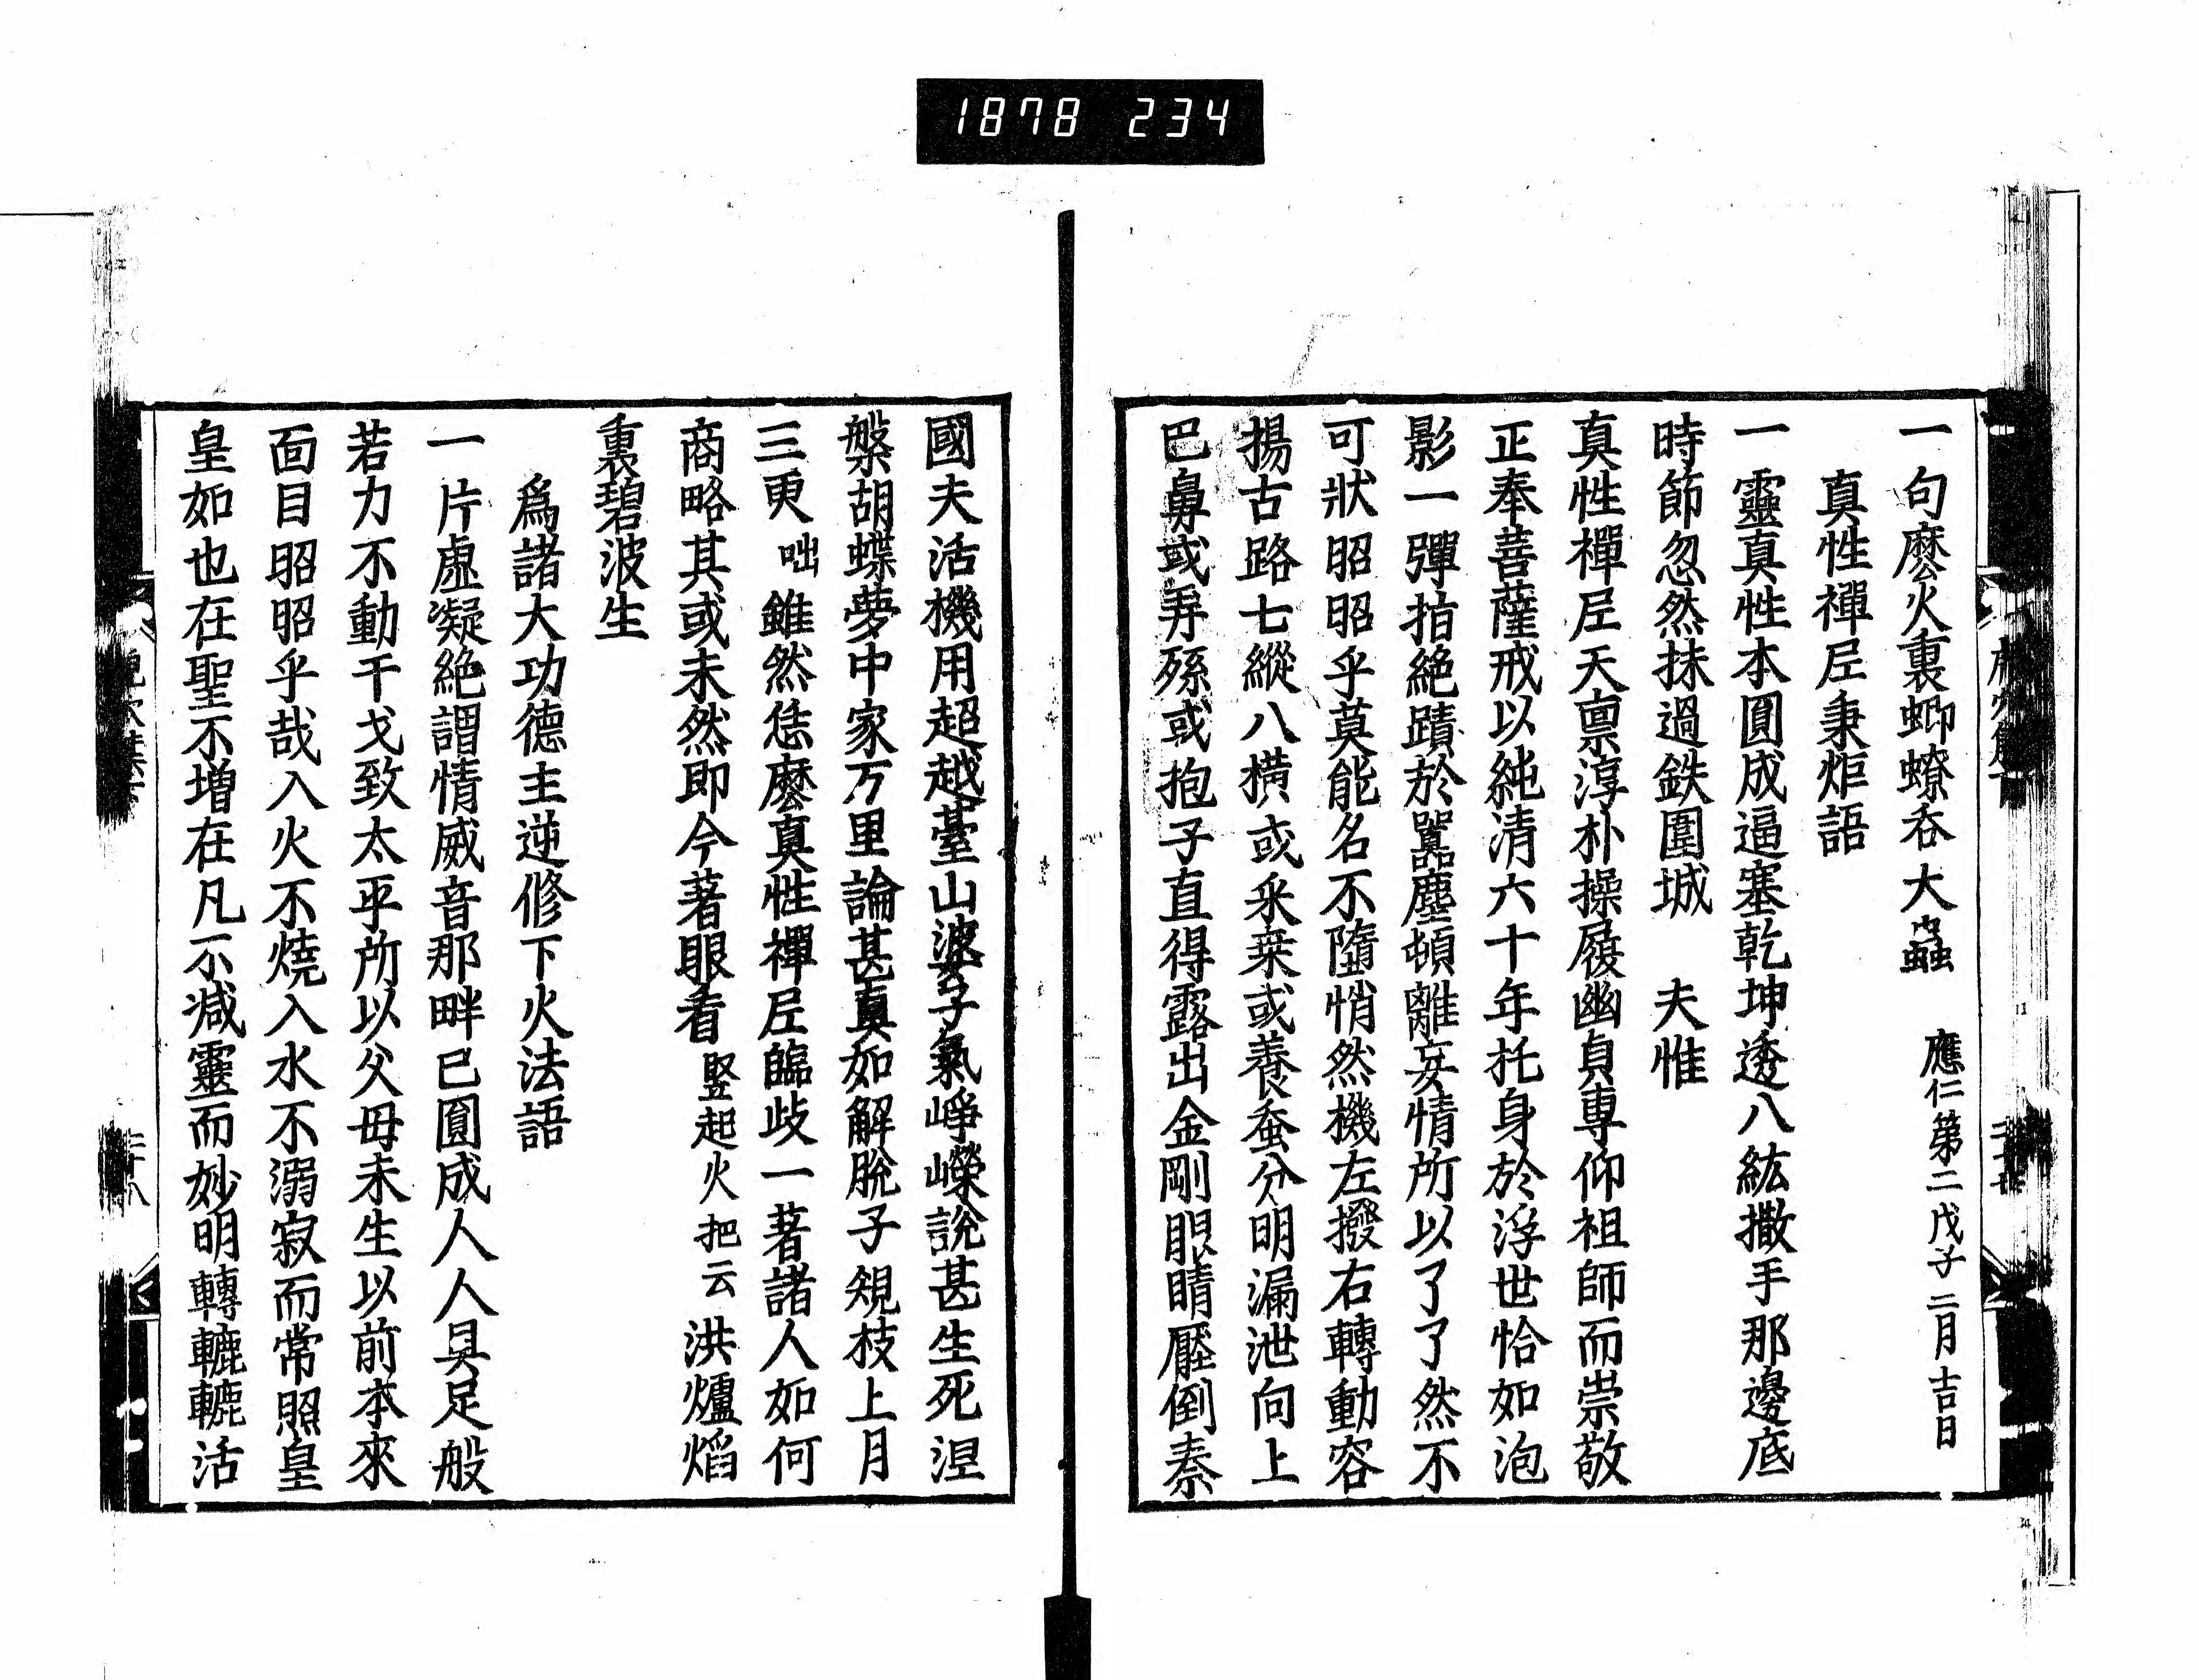 1878 234
一句麽火裏蝍蟟吞大蟲 應仁第二戊子二月吉日
真性禪尼秉炬語
一靈真性本圓成逼塞乾坤透八紘撒手那邊底
時節忽然抹過鉄圍城 夫惟
真性禪尼天禀淳朴操履幽貞專仰祖師而崇敬
正奉菩薩戒以純清六十年托身於浮世恰如泡
影一彈指絕蹟於囂塵頓離妄情所以了了然不
可狀昭昭乎莫能名不墮悄然機左撥右轉動容
揚古路七縱八橫或采桒或養蚕分明漏泄向上
巴鼻或弄孫或抱子直得露出金剛眼睛壓倒秦
國夫活機用超越臺山婆子氣崢嶸說甚生死涅
槃胡蝶夢中家万里論甚真如解脫子規枝上月
三更 咄 雖然恁麽真性禪尼臨歧一著諸人如何
商略其或未然即今著眼看 竪起火把云 洪爐焰
裏碧波生
爲諸大功德主逆修下火法語
一片虛凝絕謂情威音那畔已圓成人人具足般
若力不動干戈致太平所以父母未生以前本來
面目昭昭乎哉入火不燒入水不溺寂而常照皇
皇如也在聖不增在凡不减靈而妙明轉轆轆活